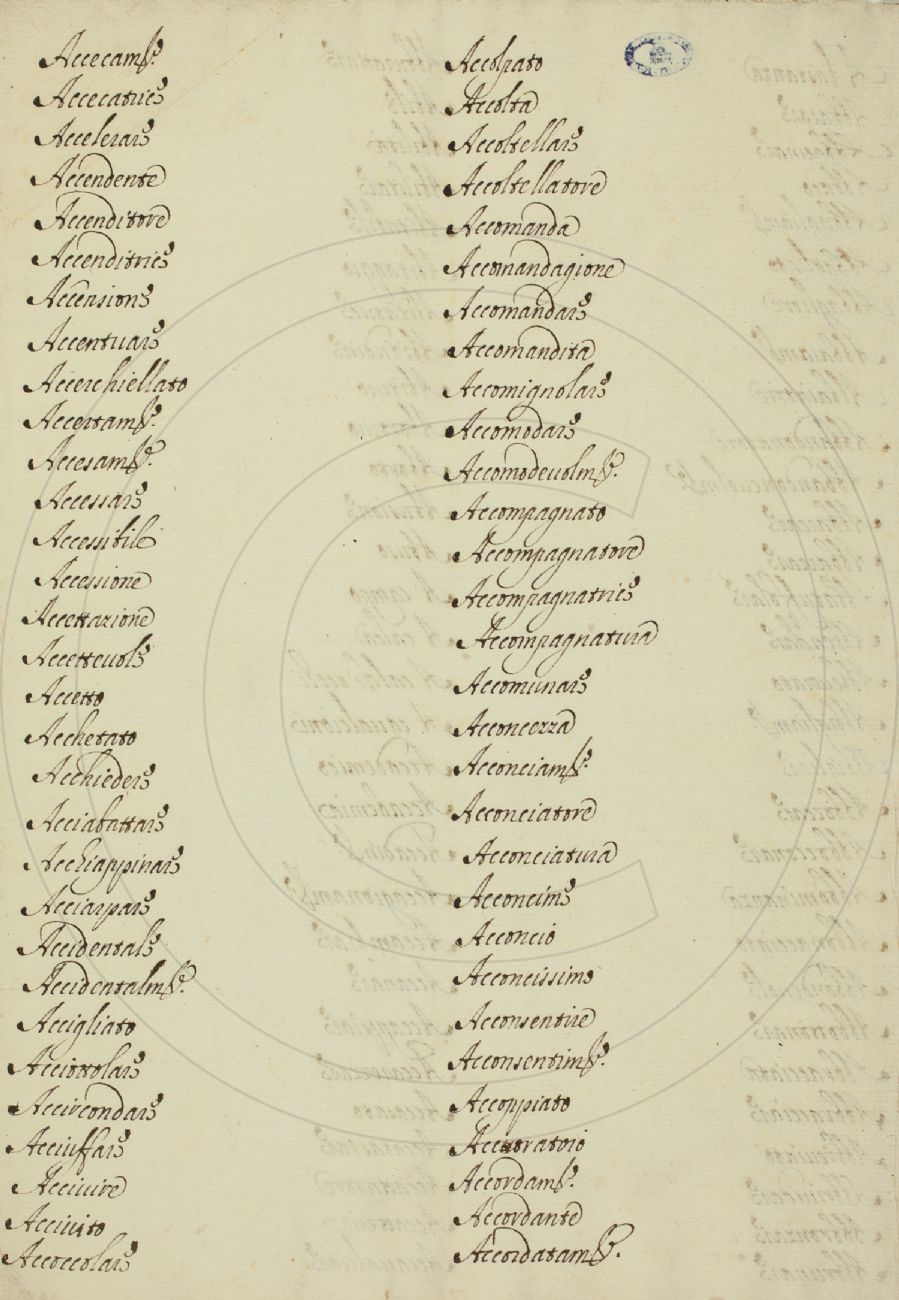 Accecam.te
Accecatrice
Accelerare
Accendente
Accenditore
Accenditrice
Accensione
Accentuare
Accerchiellato
Accertam.to
Accesam.te
Accessare
Accessibile
Accessione
Accettazione
Accettevole
Accetto
Acchetato
Acchiedere
Acciabattare
Acchiappinare
Acciarpare
Accidentale
Accidentalm.te
Accigliato
Acciottolare
Accircondare
Acciuffare
Accivire
Accivito
Accoccolare
Accolpato
Accolta
Accoltellare
Accoltellatore
Accomanda
Accomandagione
Accomandare
Accomandita
Accomignolare
Accomodare
Accomodevolm.te
Accompagnato
Accompagnatore
Accompagnatrice
Accompagnatura
Accomunare
Acconcezza
Acconciam.te
Acconciatore
Acconciatura
Acconcime
Acconcio
Acconcissimo
Acconsentire
Acconsentim.to
Accoppiato
Accoratoio
Accordam.to
Accordante
Accordatam.te